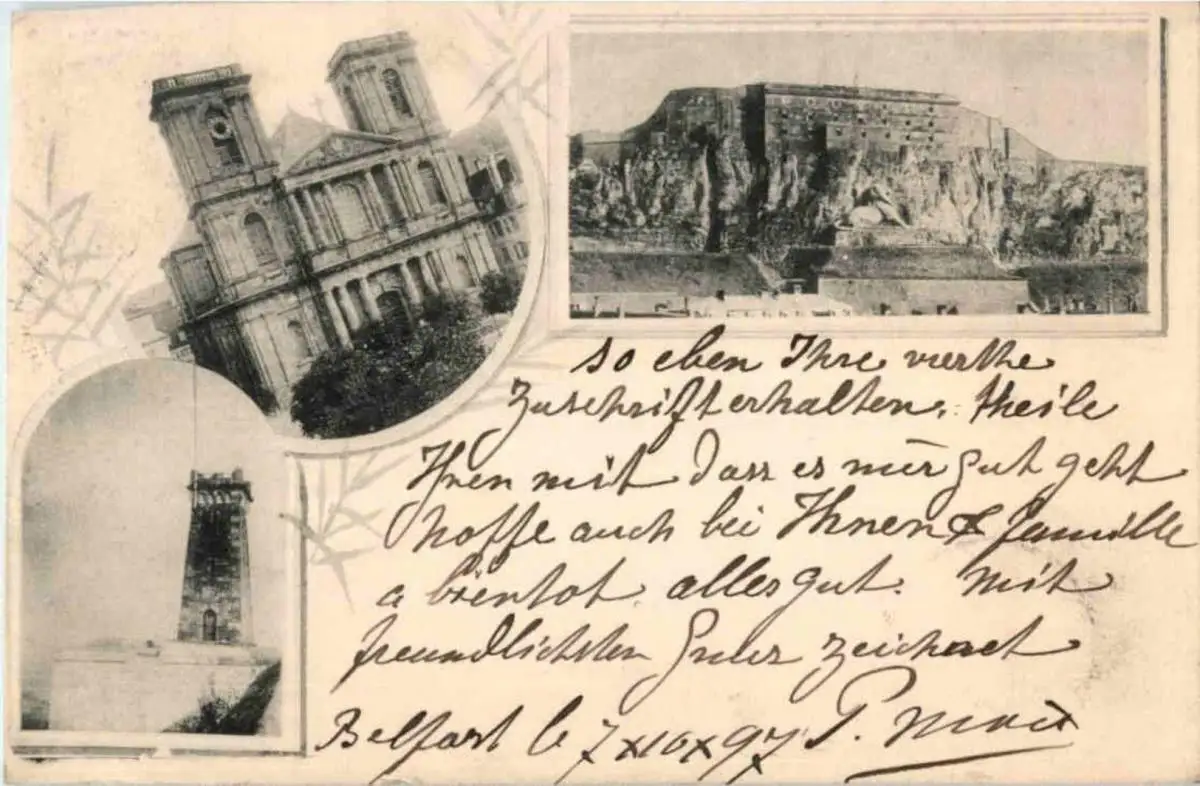 so eben Ihre vierthe
Zuschrift erhalten, theile
Ihnen mit dass es mir gut geht
hoffe auch bei Ihnen & famille
a bientot. alles gut. Mit
freundlichsten Gruss zeichnet
Belfort le 7x10x97 P.